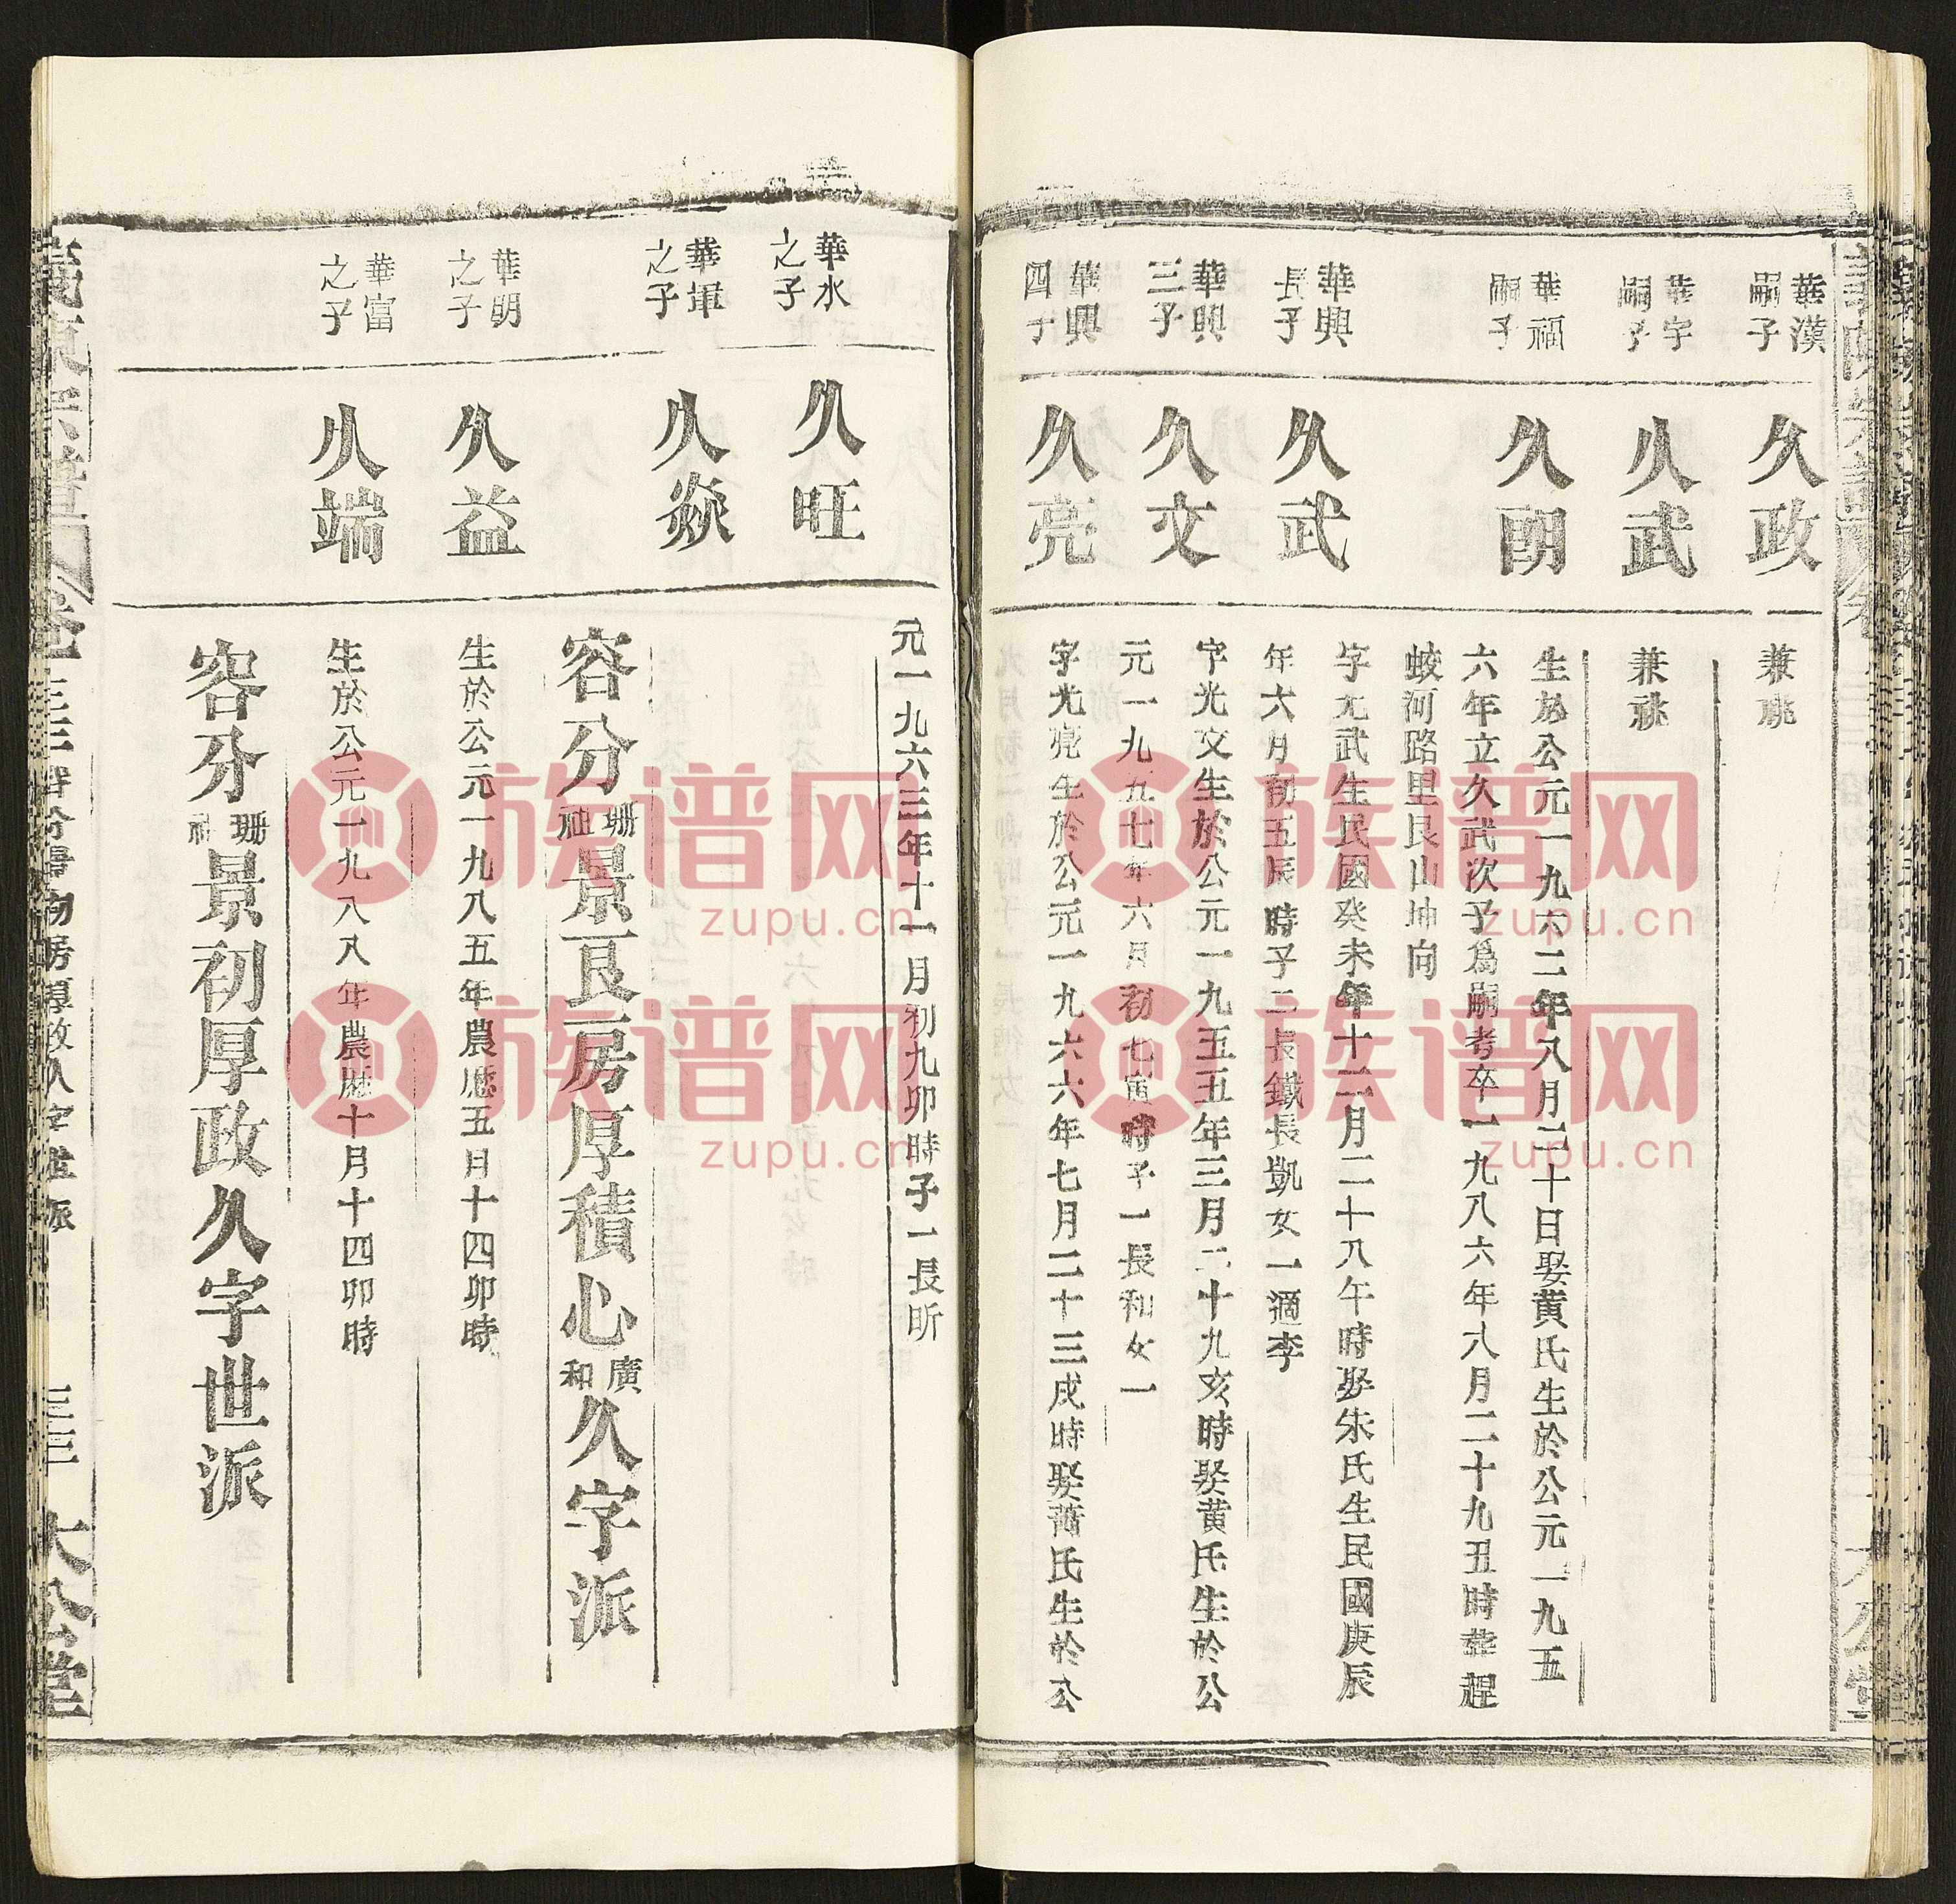 華漢
嗣子
久政
兼祧
華宇
嗣子
久武
兼祧
華福
嗣子
久朗
生於公元一九六二年八月二十日娶黄氏生於公元一九五
六年立久武次子爲嗣考卒一九八六年八月二十九丑時葬趕
蛟河路里艮山坤向
華興
長子
久武
字光武生民國癸未年十二月二十八午時娶朱氏生民國庚辰
年六月初五辰時子二長鐵長凱女一適李
華興
三子
久文
字光文生於公元一九五五年三月二十九亥時娶黄氏生於公
元一九五七年六月初七寅時子一長和女一
華興
四子
久亮
字光亮生於公元一九六六年七月二十三戌時娶蕭氏生於公
元一九六三年十一月初九卯時子一長昕
華水
之子
久旺
華軍
之子
久焱
容分珊祖景良房厚積心廣和久字派
華明
之子
久益
生於公元一九八五年農歷五月十四卯時
華富
之子
久端
生於公元一九八八年農歷十月十四卯時
容分珊祖景初厚政久字世派
大公堂
族谱网
zupu.cn
族谱网
zupu.cn
族谱网
zupu.cn
族谱网
zupu.cn